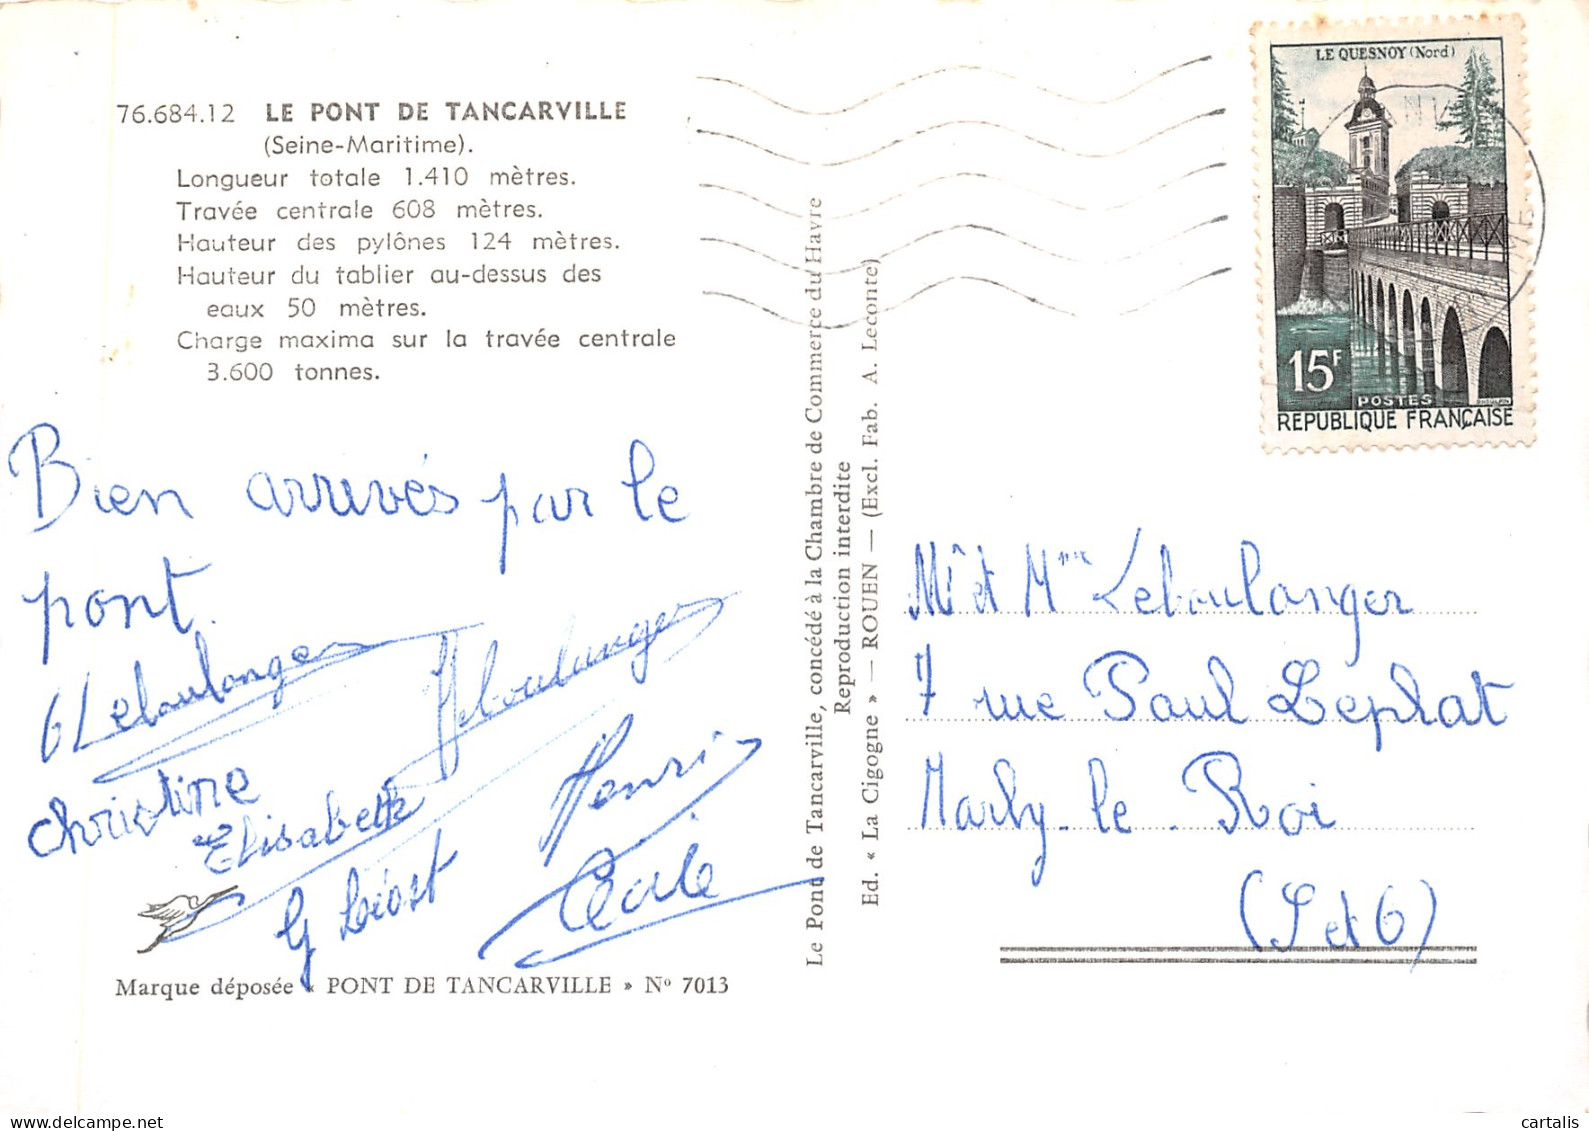 76.684.12 LE PONT DE TANCARVILLE
(Seine-Maritime).
Longueur totale 1.410 mètres.
Travée centrale 608 mètres.
Hauteur des pylônes 124 mètres.
Hauteur du tablier au-dessus des
eaux 50 mètres.
Charge maxima sur la travée centrale
3.600 tonnes.
Bien arrivés par le
pont.
Leboulanger
Leboulanger
Christine
Elisabeth
Henri
Cécile
Marque déposée « PONT DE TANCARVILLE » Nº 7013
Le Pont de Tancarville, concédé à la Chambre de Commerce du Havre
Reproduction interdite
Ed. « La Cigogne » — ROUEN — (Excl. Fab. A. Leconte)
LE QUESNOY (Nord)
15F
POSTES
REPUBLIQUE FRANÇAISE
Mr et Mme Leboulanger
7 rue Paul Leplat
Marly-le-Roi
(S et O)
cartalis